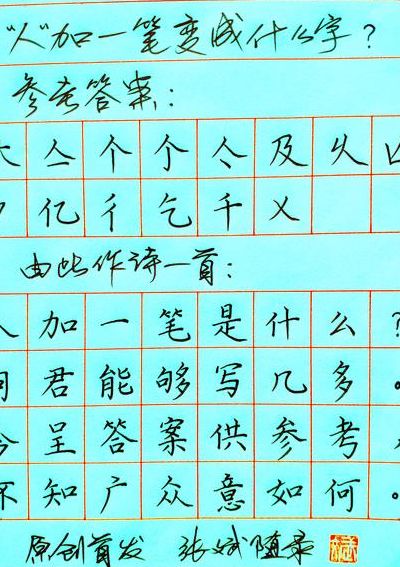 "人"加一笔变成什么字？
参考答案：
大 亼 个 个 亽 及 火
亿 彳 乞 千 乂
由此作诗一首：
人加一笔是什么？
问君能够写几多。
今呈答案供参考，
不知广众意如何。
原创首发 张斌随录